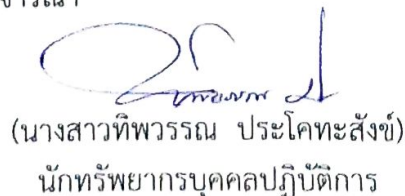 (นางสาวทิพวรรณ ประโคทะสังข์)
นักทรัพยากรบุคคลปฏิบัติการ